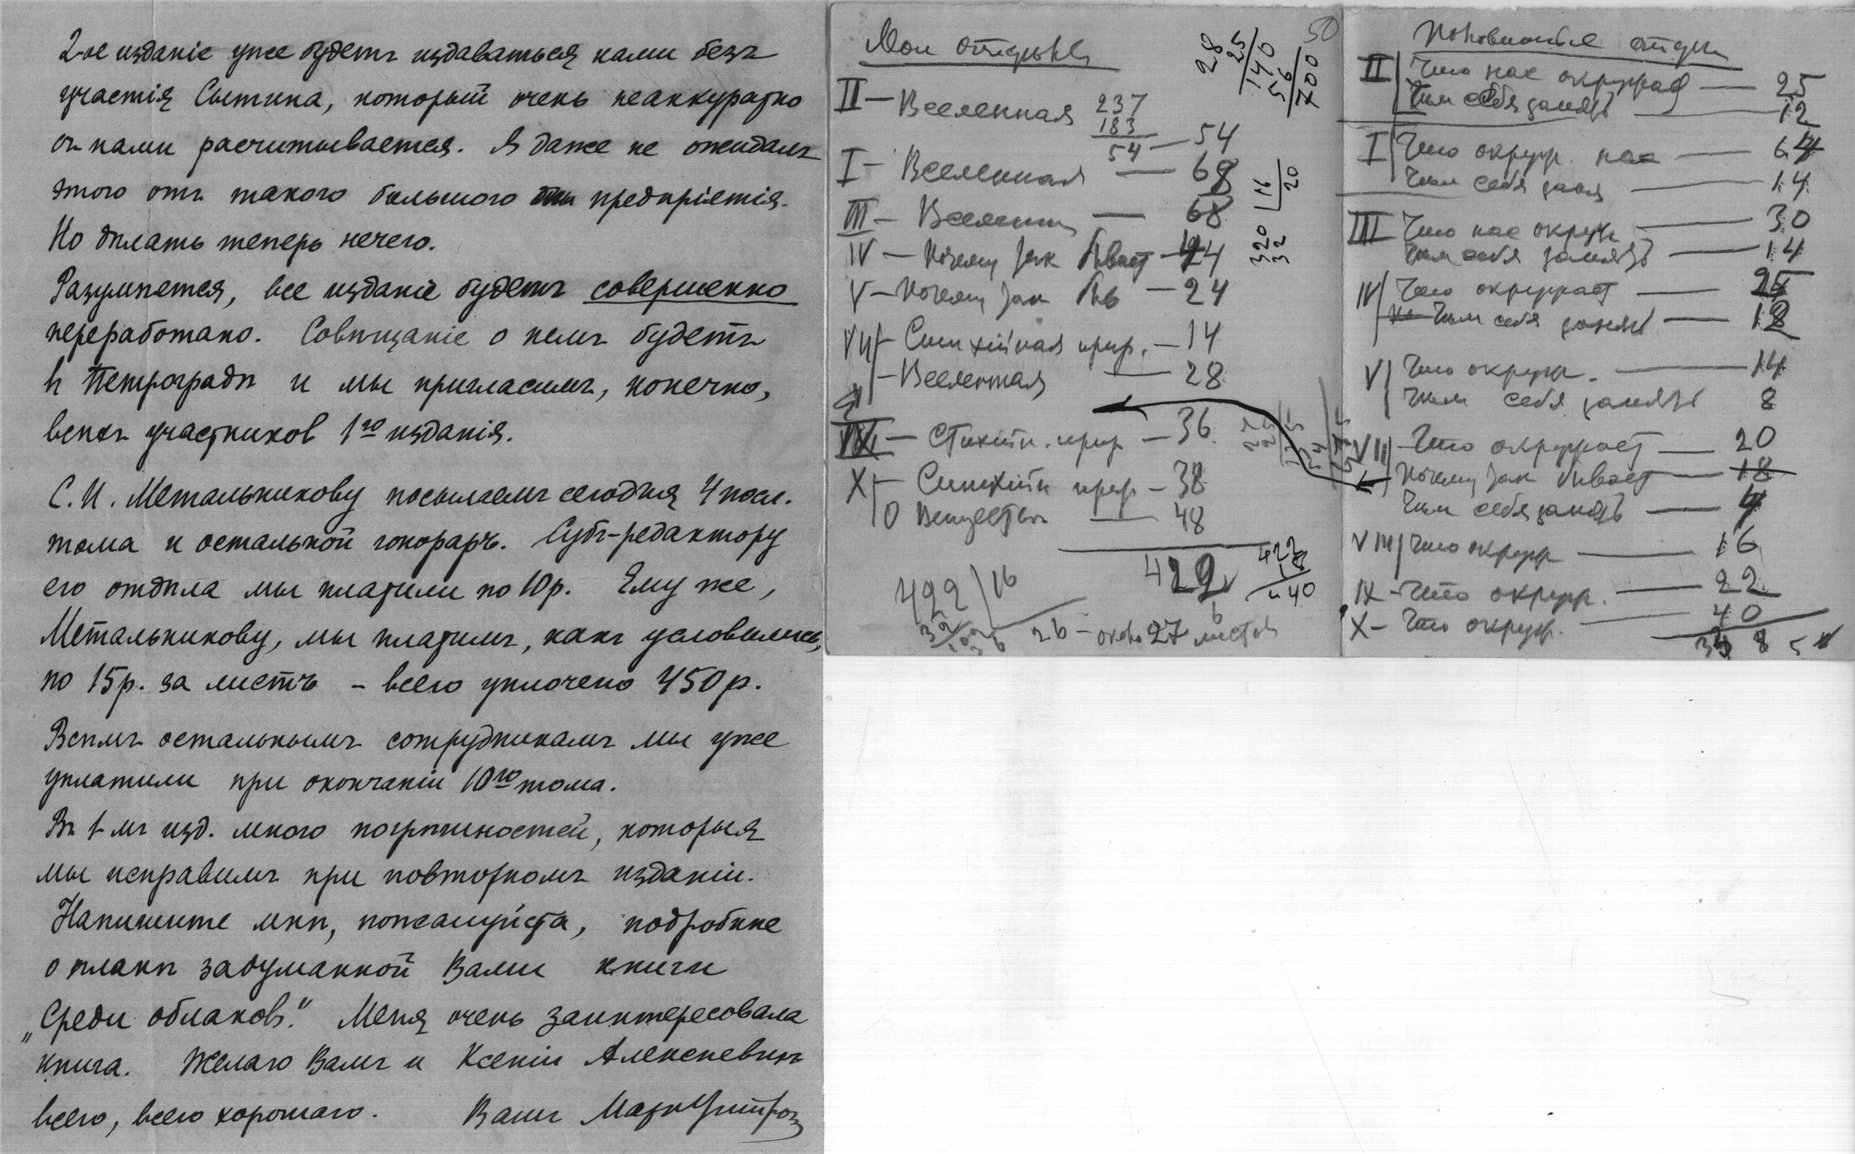 2-ое изданіе уже будетъ издаваться нами безъ
участія Сытина, который очень неаккуратно
съ нами расчитывается. Я даже не ожидалъ
этого отъ такого большого предпріятія.
Но дѣлать теперь нечего.
Разумѣется, все изданіе будетъ совершенно
переработано. Совѣщаніе о немъ будетъ
въ Петроградѣ и мы пригласимъ, конечно,
всѣхъ участников 1го изданія.
С. И. Метальникову посылаемъ сегодня 4 посл.
тома и остальной гонораръ. Субъ-редактору
его отдѣла мы платили по 10 р. Ему же,
Метальникову, мы платимъ, какъ условились,
по 15 р. за листъ – всего уплочено 450 р.
Всѣмъ остальнымъ сотрудникамъ мы уже
уплатили при окончаніи 10го тома.
Въ 1-мъ изд. много погрѣшностей, которыя
мы исправимъ при повторномъ изданіи.
Напишите мнѣ, пожалуйста, подробнѣе
о планѣ задуманной Вами книги
„Среди облаков." Меня очень заинтересовала
книга. Желаю Вамъ и Ксеніи Алексѣевнѣ
всего, всего хорошаго. Вашъ
Мои отдѣлы
II — Вселенная 237
183
54 — 54
I — Вселенная — 68
III — Вселенн — 68
IV — Почему так бывает — 44
V — Почему так быв — 24
VII — Стихійная прир. — 14
— Вселенная — 28
— Стихійн. прир — 36
X — Стихійн прир — 38
О Веществѣ — 48
422
422 | 16
32
26 – около 27 листов
28
25
140
56
700
50
320 | 16
32 20
отдѣл
II Что нас окружает — 25
Чѣм себя занять — 12
I Что окруж. нас — 64
Чѣм себя заня — 14
III Что нас окруж — 30
Чѣм себя занять — 14
IV Что окружает — 25
Чѣм себя занять — 18
V Что окруж. — 14
Чѣм себя занять 8
VII — Что окружает — 20
Почему так бывает — 18
Чѣм себя занять — 4
VIII Что окруж — 16
IX – Что окруж. — 22
X – Что окруж. — 40